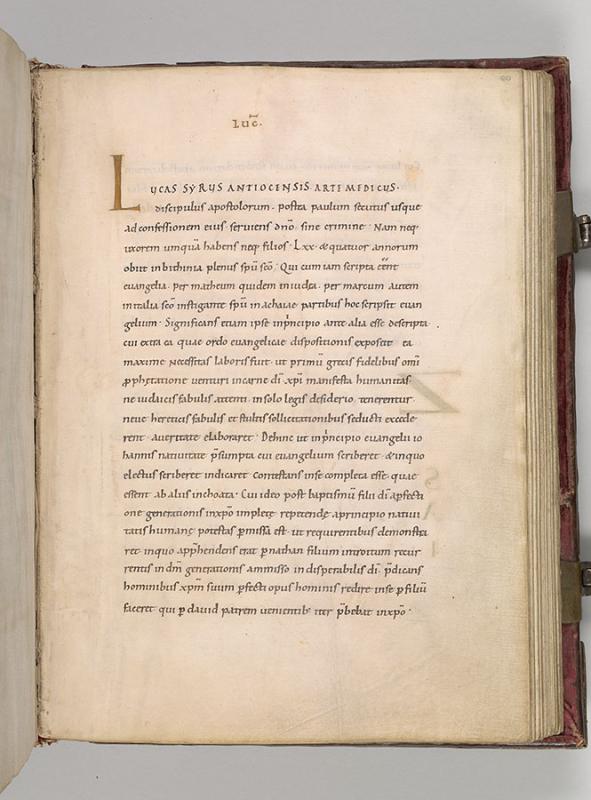 Luc̄.
LUCAS SYRUS ANTIOCENSIS ARTE MEDICUS.
discipulus apostolorum. postea paulum secutus usque
ad confessionem eius serviens dn̄o. sine crimine. Nam neq;
uxorem umquā habens neq; filios. Lxx. & quatuor annorum
obiit in bithinia plenus sp̄u sc̄o. Qui cum iam scripta eēnt
euangelia. per matheum quidem in iudęa. per marcum autem
in italia sc̄o instigante sp̄u in achaiae partibus hoc scripsit euan
gelium. Significans etiam ipse in principio ante alia esse descripta.
cui extra ea quae ordo euangelicae dispositionis exposcit ea
maxime necessitas laboris fuit. ut primū grecis fidelibus omī
p̄phetatione venturi in carne dī xp̄i manifesta humanitas
ne iudaicis fabulis attenti. in solo legis desiderio tenerentur
neue hereticis fabulis et stultis sollicitationibus seducti excede
rent a ueritate elaboraret. Dehinc ut in principio euangelii io
hannis natiuitate p̄sumpta cui euangelium scriberet & in quo
electus scriberet indicaret contestans in se completa esse. quae
essent ab aliis inchoata. Cui ideo post baptismū filii dī a p̄fecti
one generationis in xp̄o implete repetendę a principio natiui
tatis humanę potestas p̄missa est. ut requirentibus demonstra
ret in quo app̄hendens erat p̄ nathan filium introitum recur
rentis in dm̄ generationis ammisso indisparabilis dī. p̄dicans
hominibus xp̄m suum p̄fecti opus hominis redire in se p̄ filiū
faceret qui p̄ dauid patrem uenientib; iter p̄bebat in xp̄o.